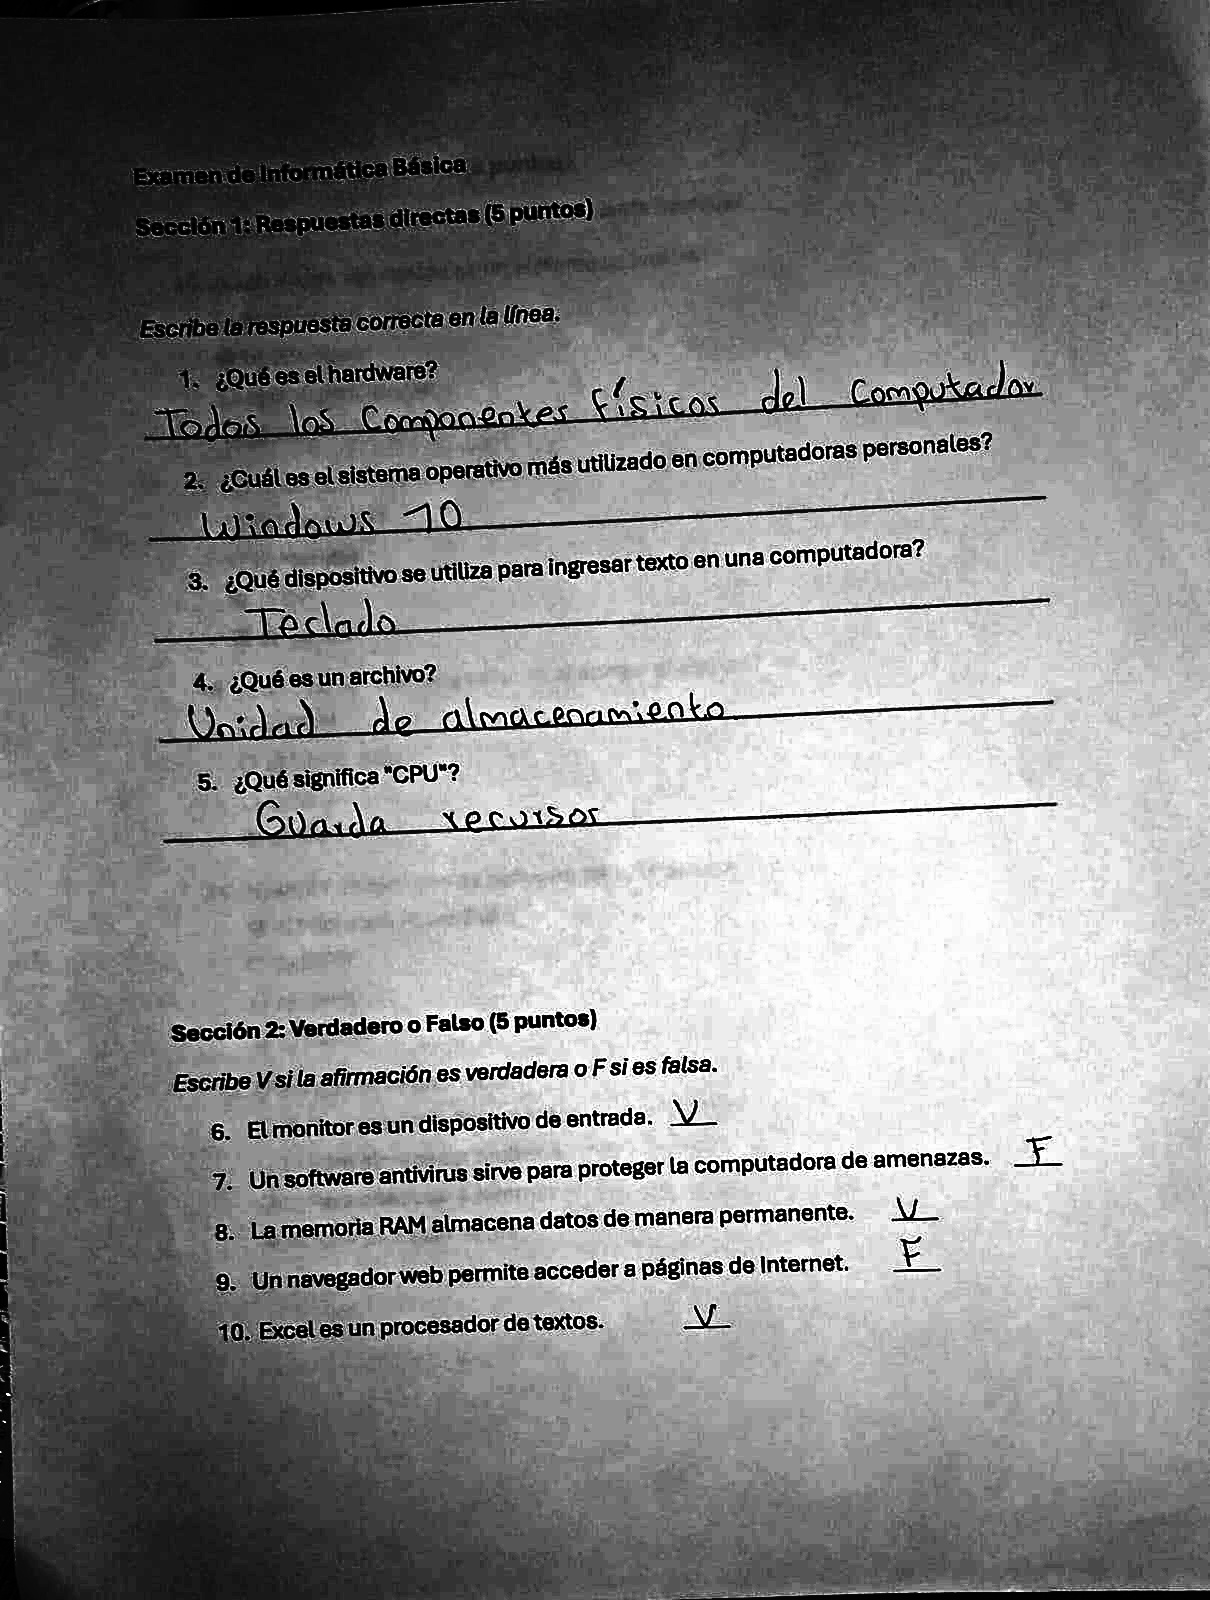 Examen de Informática Básica
Sección 1: Respuestas directas (5 puntos)
Escribe la respuesta correcta en la línea.
1. ¿Qué es el hardware?
Todos los Componentes Físicos del Computador
2. ¿Cuál es el sistema operativo más utilizado en computadoras personales?
Windows 10
3. ¿Qué dispositivo se utiliza para ingresar texto en una computadora?
Teclado
4. ¿Qué es un archivo?
Unidad de almacenamiento
5. ¿Qué significa "CPU"?
Guarda recursos
Sección 2: Verdadero o Falso (5 puntos)
Escribe V si la afirmación es verdadera o F si es falsa.
6. El monitor es un dispositivo de entrada. V
7. Un software antivirus sirve para proteger la computadora de amenazas. F
8. La memoria RAM almacena datos de manera permanente. V
9. Un navegador web permite acceder a páginas de Internet. F
10. Excel es un procesador de textos. V